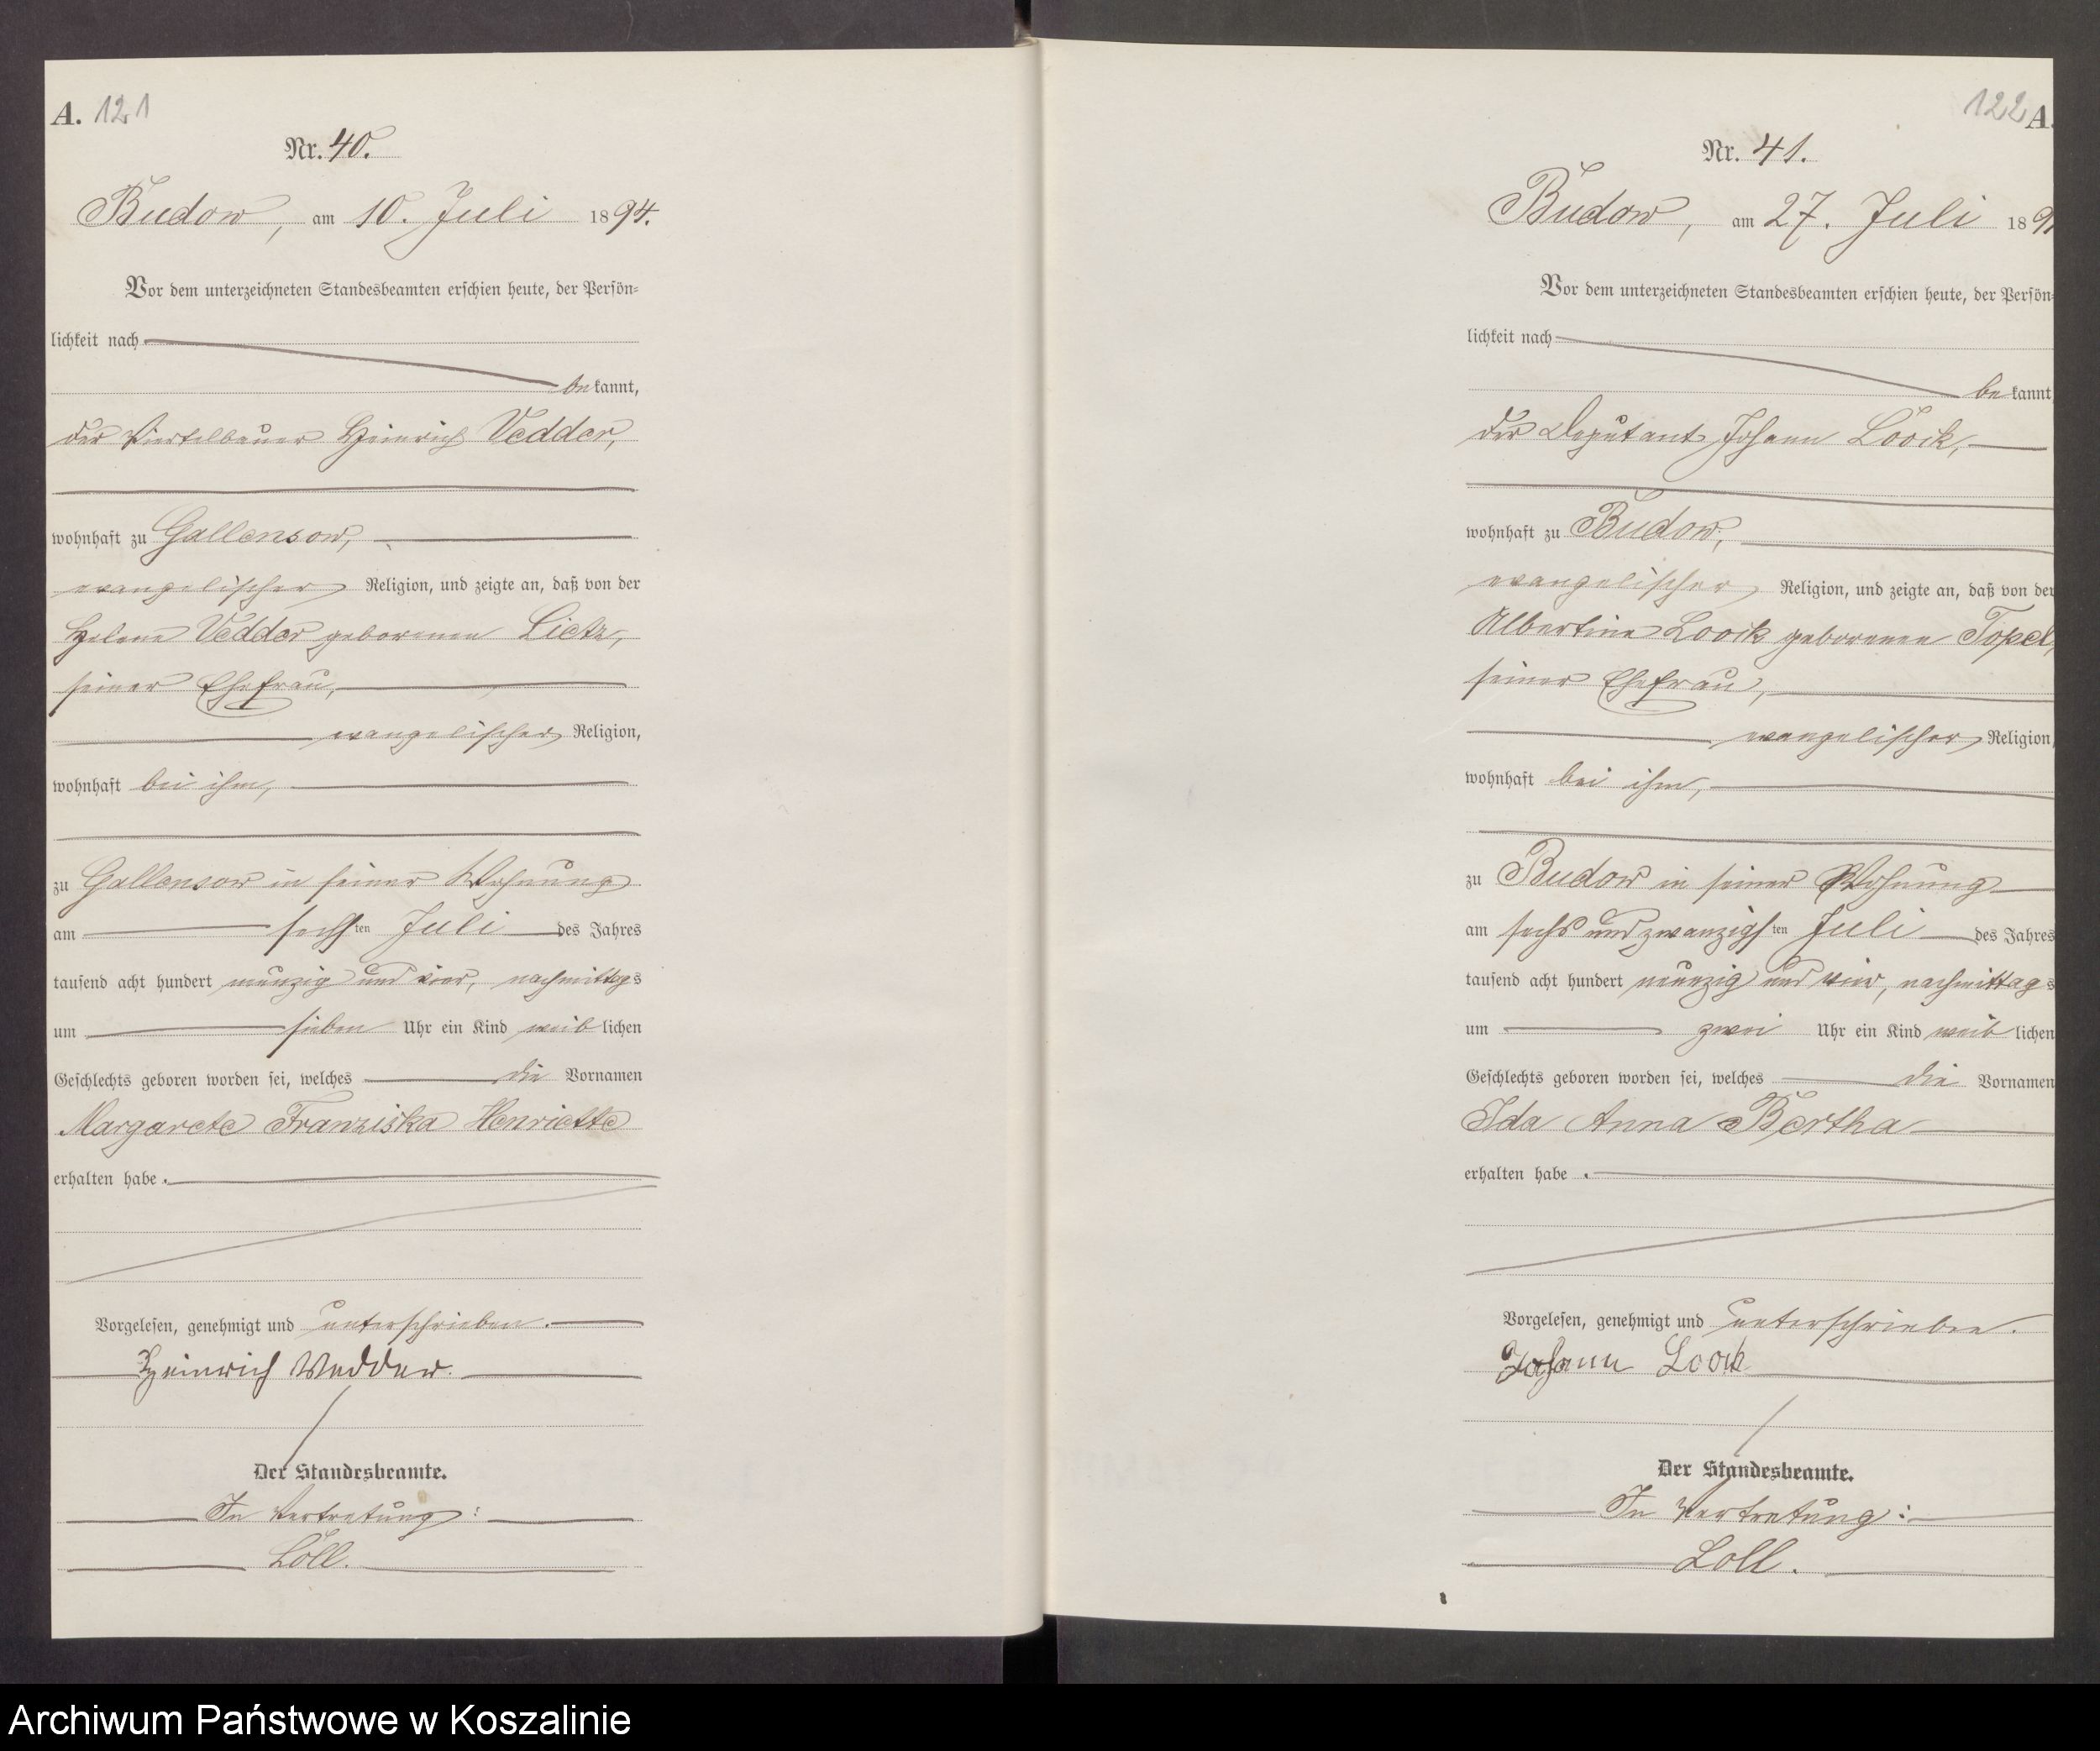 A. 121
Nr. 40.
Budow, am 10. Juli 1894.
Vor dem unterzeichneten Standesbeamten erschien heute, der Persön=
lichkeit nach
bekannt,
der Viertelbauer Heinrich Vedder,
wohnhaft zu Gallensow,
evangelischer Religion, und zeigte an, daß von der
Helene Vedder geborenen Lietz,
seiner Ehefrau,
evangelischer Religion,
wohnhaft bei ihm,
zu Gallensow in seiner Wohnung
am sechsten Juli des Jahres
tausend acht hundert neunzig und vier, nachmittags
um sieben Uhr ein Kind weiblichen
Geschlechts geboren worden sei, welches die Vornamen
Margarete Franziska Henriette
erhalten habe.
Vorgelesen, genehmigt und unterschrieben.
Heinrich Vedder.
Der Standesbeamte.
In Vertretung:
Loll.
122 A.
Nr. 41.
Budow, am 27. Juli 189
Vor dem unterzeichneten Standesbeamten erschien heute, der Persön=
lichkeit nach
bekannt
der Deputant Johann Loock,
wohnhaft zu Budow,
evangelischer Religion, und zeigte an, daß von der
Albertine Loock geborenen Topel,
seiner Ehefrau,
evangelischer Religion,
wohnhaft bei ihm,
zu Budow in seiner Wohnung
am sechs und zwanzigsten Juli des Jahres
tausend acht hundert neunzig und vier, nachmittags
um zwei Uhr ein Kind weiblichen
Geschlechts geboren worden sei, welches die Vornamen
Ida Anna Bertha
erhalten habe.
Vorgelesen, genehmigt und unterschrieben.
Johann Loock
Der Standesbeamte.
In Vertretung:
Loll.
Archiwum Państwowe w Koszalinie